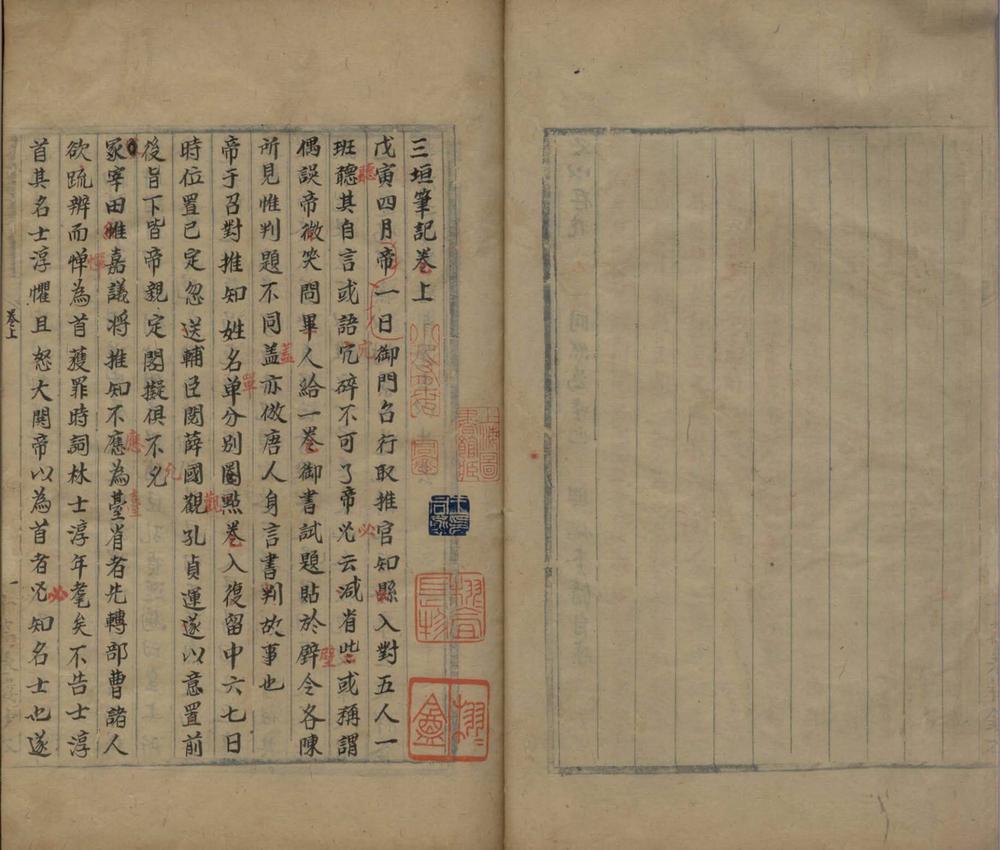 三垣筆記卷上
戊寅四月帝一日御門召行取推官知縣入對五人一
班聽其自言或語宂碎不可了帝必云减省些或稱謂
偶誤帝微笑問畢人給一卷御書試題貼於壁令各陳
所見惟判題不同盖亦倣唐人身言書判故事也
帝于召對推知姓名单分别圏點卷入復留中六七日
時位置已定忽送輔臣閲薛國觀孔貞運遂以意置前
後旨下皆帝親定閣擬俱不允
冢宰田惟嘉議將推知不應為臺省者先轉部曹諸人
欲疏辨而憚為首獲罪時詞林士淳年耄矣不告士淳
首其名士淳懼且怒大閧帝以為首者必知名士也遂
卷上
一
聽
宂
必
壁
蓋
單
觀
允
應
臺
憚
必